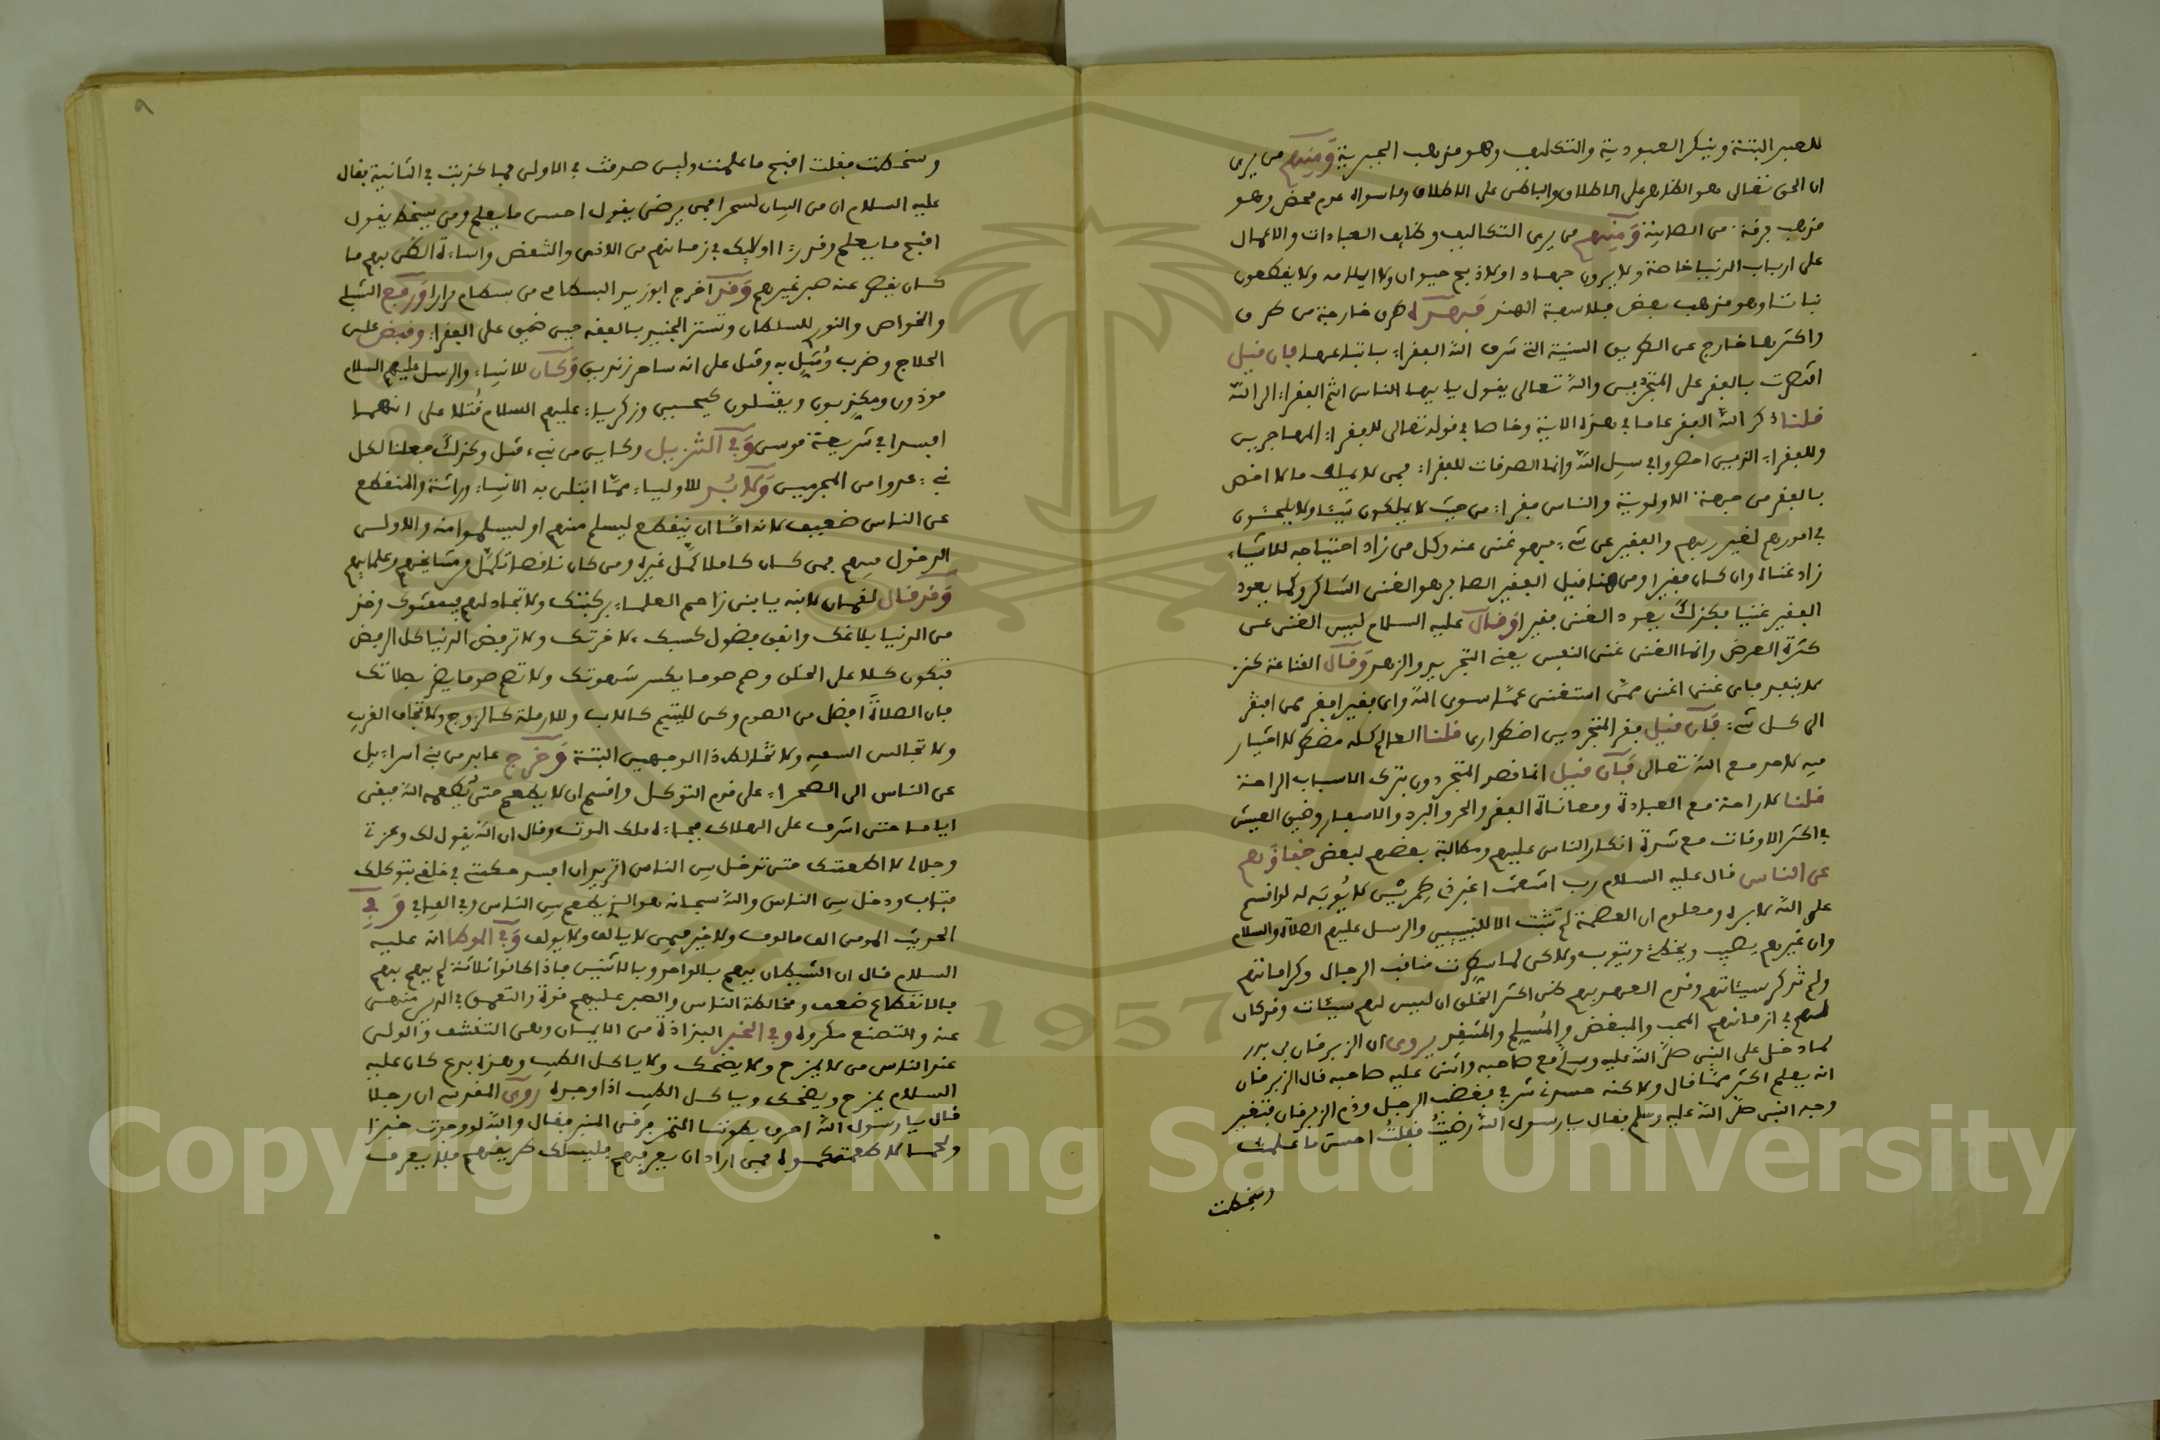 للعبد البتة وينكر العبودية والتكليف وهو مذهب الجبرية ومنهم من يرى
ان الحق تعالى هو الظاهر على الاطلاق والباطن على الاطلاق وما سواه عدم محض وهو
مذهب فرقة من الصابئة ومنهم من يرى التكاليف وظايف العبادات والاعمال
على ارباب الدنيا خاصة ولا يرون جهادا ولا ذبح حيوان ولا ايلامه ولا يقطعون
نباتا وهو مذهب بعض فلاسفة الهند فهذه طرق خارجة من طرق
واكثرها خارج عن الطريق السنية التي شرف الله الفقراء باتباعها فان قيل
الفقر على المتجردين والله تعالى يقول يا يها الناس انتم الفقراء الى الله
قلنا ذكر الله الفقر عاما في هذه الاية وخاصا في قوله تعالى للفقراء المهاجرين
وللفقراء الذين احصروا في سبيل الله وانما الصدقات للفقراء فمن لا يملك مالا اخص
بالفقر من جهة الاولوية والناس فقراء من حيث لا يملكون شيئا ولا يلجئون
في امورهم لغير ربهم والفقير عن شيء فهو غنى عنه وكل من زاد احتياجه للاشياء
زاد غناه وان كان فقيرا ومن هنا قيل الفقير الصابر هو الغنى الشاكر وكما يعود
الفقير غنيا فكذلك يعود الغنى فقيرا وقال عليه السلام ليس الغنى عن
كثرة العرض وانما الغنى غنى النفس يعني التجريد والزهد وقال القناعة كنز
لا ينفد فاى غنى اغنى ممن استغنى عما سوى الله واى فقير افقر ممن افتقر
الى كل شيء فان قيل فقر المتجردين اضطرارى قلنا العالم كله مضطر لا اختيار
فيه لاحد مع الله تعالى فان قيل انما قصد المتجردون بترك الاسباب الراحة
قلنا لا راحة مع العبادة ومعاناة الفقر والحر والبرد والاسفار وضيق العيش
في اكثر الاوقات مع شدة انكار الناس عليهم ومطالبة بعضهم لبعض
عن الناس قال عليه السلام رب اشعث اغبر في طمرين لا يؤبه له لو اقسم
على الله لابره ومعلوم ان العصمة لم تثبت الا للنبيين والرسل عليهم الصلاة والسلام
وان غيرهم يصيب ويخطئ ويتوب ولاكن لما سطرت مناقب الرجال وكراماتهم
ولم تذكر سيئاتهم وقدم العهد بهم ظن اكثر الخلق ان ليس لهم سيئات وقد كان
لهم في ازمانهم المحب والمبغض والمسلم والمنتقد يروى ان الزبرقان بن بدر
لما دخل على النبي صلى الله عليه وسلم مع صاحبه واثنى عليه صاحبه قال الزبرقان
انه يعلم اكثر مما قال ولاكنه حسدني شرفي فغضب الرجل وذم الزبرقان فتغير
وجه النبى صلى الله عليه وسلم فقال يا رسول الله رضيت فقلت احسن ما علمت
وسخطت
٩
وسخطت فقلت اقبح ما علمت وليس صدقت في الاولى فما كذبت في الثانية فقال
عليه السلام ان من البيان لسحرا فمن يرضى يقول احسن ما يعلم ومن يسخط يقول
اقبح ما يعلم وقد رزا اولايك في زمانهم من الاذى والتنقص واساءة الظن بهم ما
كان يضيق عنه صبر غيرهم وقد اخرج ابو زيد البسطامي من بسطام مرارا ورفع الشبلي
والخواص والنورى للسلطان وتستر الجنيد بالفقه حين ضيق على الفقراء وقبض على
الحلاج وضرب ومثل به وقتل على انه ساحر زنديق وكان للانبياء والرسل عليهم السلام
موذون ومكذبون ويقتلون كيحيى وزكرياء عليهم السلام قتلا على انهما
افسدا في شريعة موسى وفي التنزيل وكاين من نبي قتل وكذلك جعلنا لكل
نبي عدوا من المجرمين ولا بد للاولياء مما ابتلى به الانبياء وراثة والمنقطع
عن الناس ضعيف لانه اما ان ينقطع ليسلم منهم او ليسلموا منه والاولى
الدخول فيهم فمن كان كاملا كمل غيره ومن كان ناقصا تكمل ومشايخهم وعلمايهم
وقد قال لقمان لابنه يا بنى زاحم العلماء بركبتك ولا تجادلهم فيمقتوك وخذ
من الدنيا بلاغك وانفق فضول كسبك لاخرتك ولا ترفض الدنيا كل الرفض
فتكون كلا على الخلق وصم صوما يكسر شهوتك ولا تصم صوما يضر بصلاتك
فان الصلاة افضل من الصوم وكن لليتيم كالاب وللارملة كالزوج ولا تحاب القريب
ولا تجالس السفيه ولا تخالط ذا الوجهين البتة وخرج عابد من بني اسراءيل
عن الناس الى الصحراء على قدم التوكل واقسم ان لا يطعم حتى يطعمه الله فبقى
اياما حتى اشرف على الهلاك فجاءه ملك الموت وقال ان الله يقول لك وعزتي
وجلالي لا اطعمتك حتى تدخل بين الناس اتريد ان افسد حكمتي في خلقي بتوكلك
فتاب ودخل بين الناس والله سبحانه هو الذي يطعم بين الناس وفي الفيافي وفي
الحديث المومن الف مالوف ولا خير فيمن لا يالف ولا يولف وفي الموطا انه عليه
السلام قال ان الشيطان يهم بالواحد وبالاثنين فاذا كانوا ثلاثة لم يهم بهم
فالانقطاع ضعف ومخالطة الناس والصبر عليهم قوة والتعمق في الدين منهى
عنه والتصنع مكروه وفي الخبر البذاذة من الايمان وهى التقشف والولى
عند الناس من لا يمزح ولا يضحك ولا ياكل الطيب وهذه بدع كان عليه
السلام يمزح ويضحك وياكل الطيب اذا وجده روى ان رجلا
قال يا رسول الله احرق بطوننا التمر فرقى المنبر فقال والله لو وجدت خبزا
ولحما لاطعمتكموه فمن اراد ان يعرفهم فليسلك طريقهم فلا يعرف
Copyright © King Saud University
1957